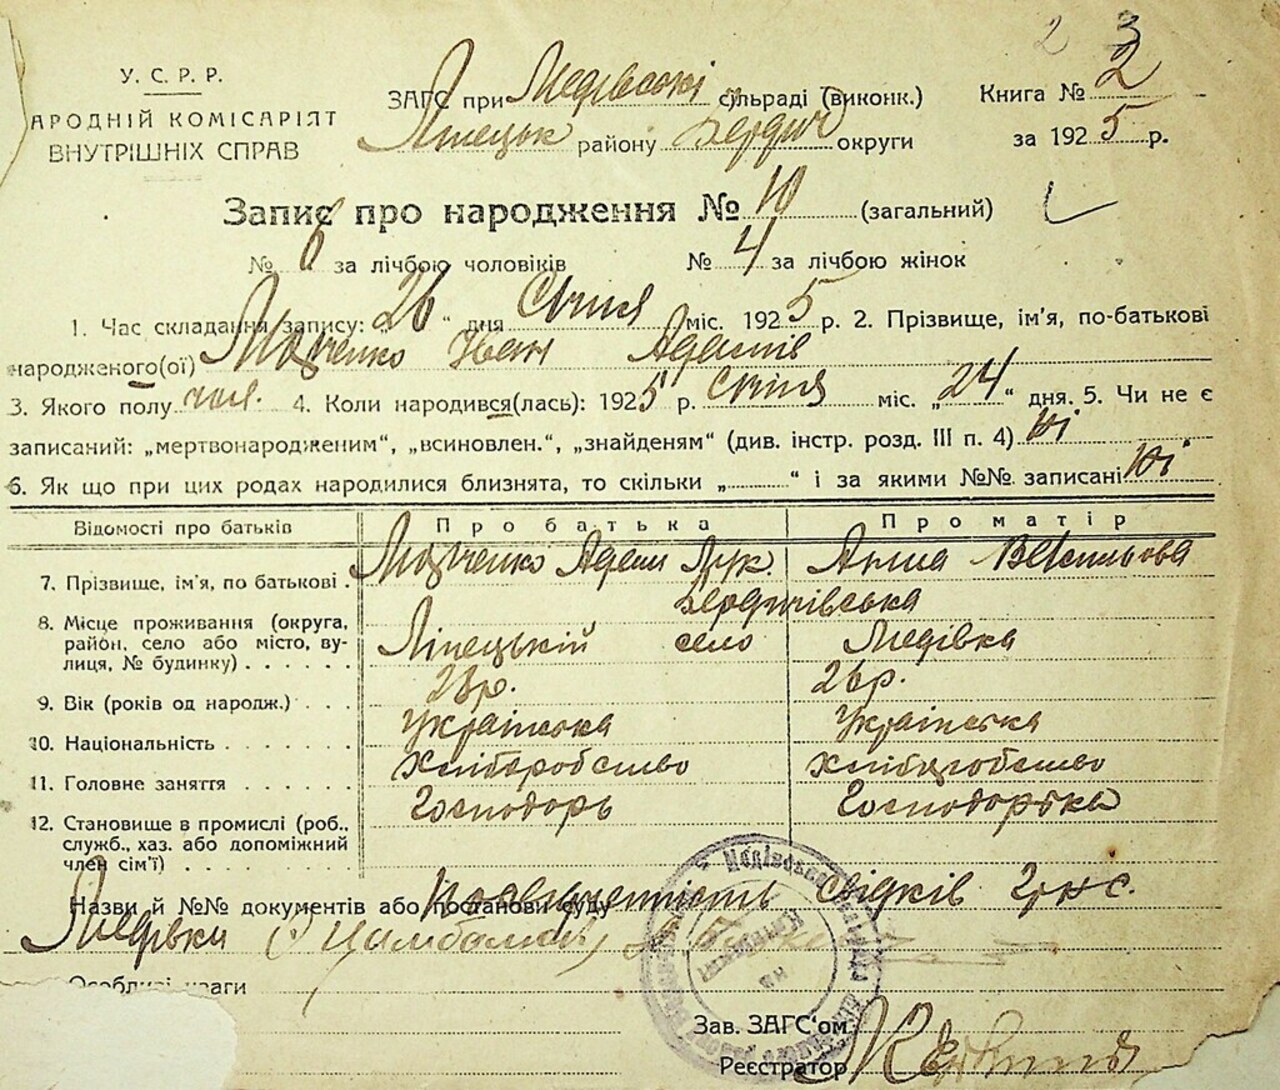 2 3
У. С. Р. Р.
АРОДНІЙ КОМІСАРІЯТ
ВНУТРІШНІХ СПРАВ
ЗАГС при Медівській сільраді (виконк.)
Книга № 2
Ліпецьк району Бердич округи
за 1925 р.
Запис про народження № 10 (загальний)
№ 6 за лічбою чоловіків № 4 за лічбою жінок
1. Час складання запису: „26“ дня Січня міс. 1925 р. 2. Прізвище, ім'я, по-батькові
народженого(ої) Іван Адамів
3. Якого полу чол. 4. Коли народився(лась): 1925 р. Січня міс. „24“ дня. 5. Чи не є
записаний: „мертвонародженим“, „всиновлен.“, „знайденям“ (див. інстр. розд. III п. 4) ні
6. Як що при цих родах народилися близнята, то скільки „ “ і за якими №№ записані ні
Відомості про батьків Про батька Про матір
7. Прізвище, ім'я, по батькові . Адам Лук. Анна Васильова
8. Місце проживання (округа, район, село або місто, вулиця, № будинку) . . . . . . Бердичівська
Ліпецькій село Медівка
9. Вік (років од народж.) . . . 26р. 26р.
10. Національність . . . . . . . Українська Українська
11. Головне заняття . . . . . . Хліборобство Хліборобство
12. Становище в промислі (роб., служб., хаз. або допоміжний член сім'ї) . . . . . . . . Господарь Господарька
Назви й №№ документів або постанови суду свідків
Медівки
Особливі уваги
Зав. ЗАГС'ом
Реєстратор